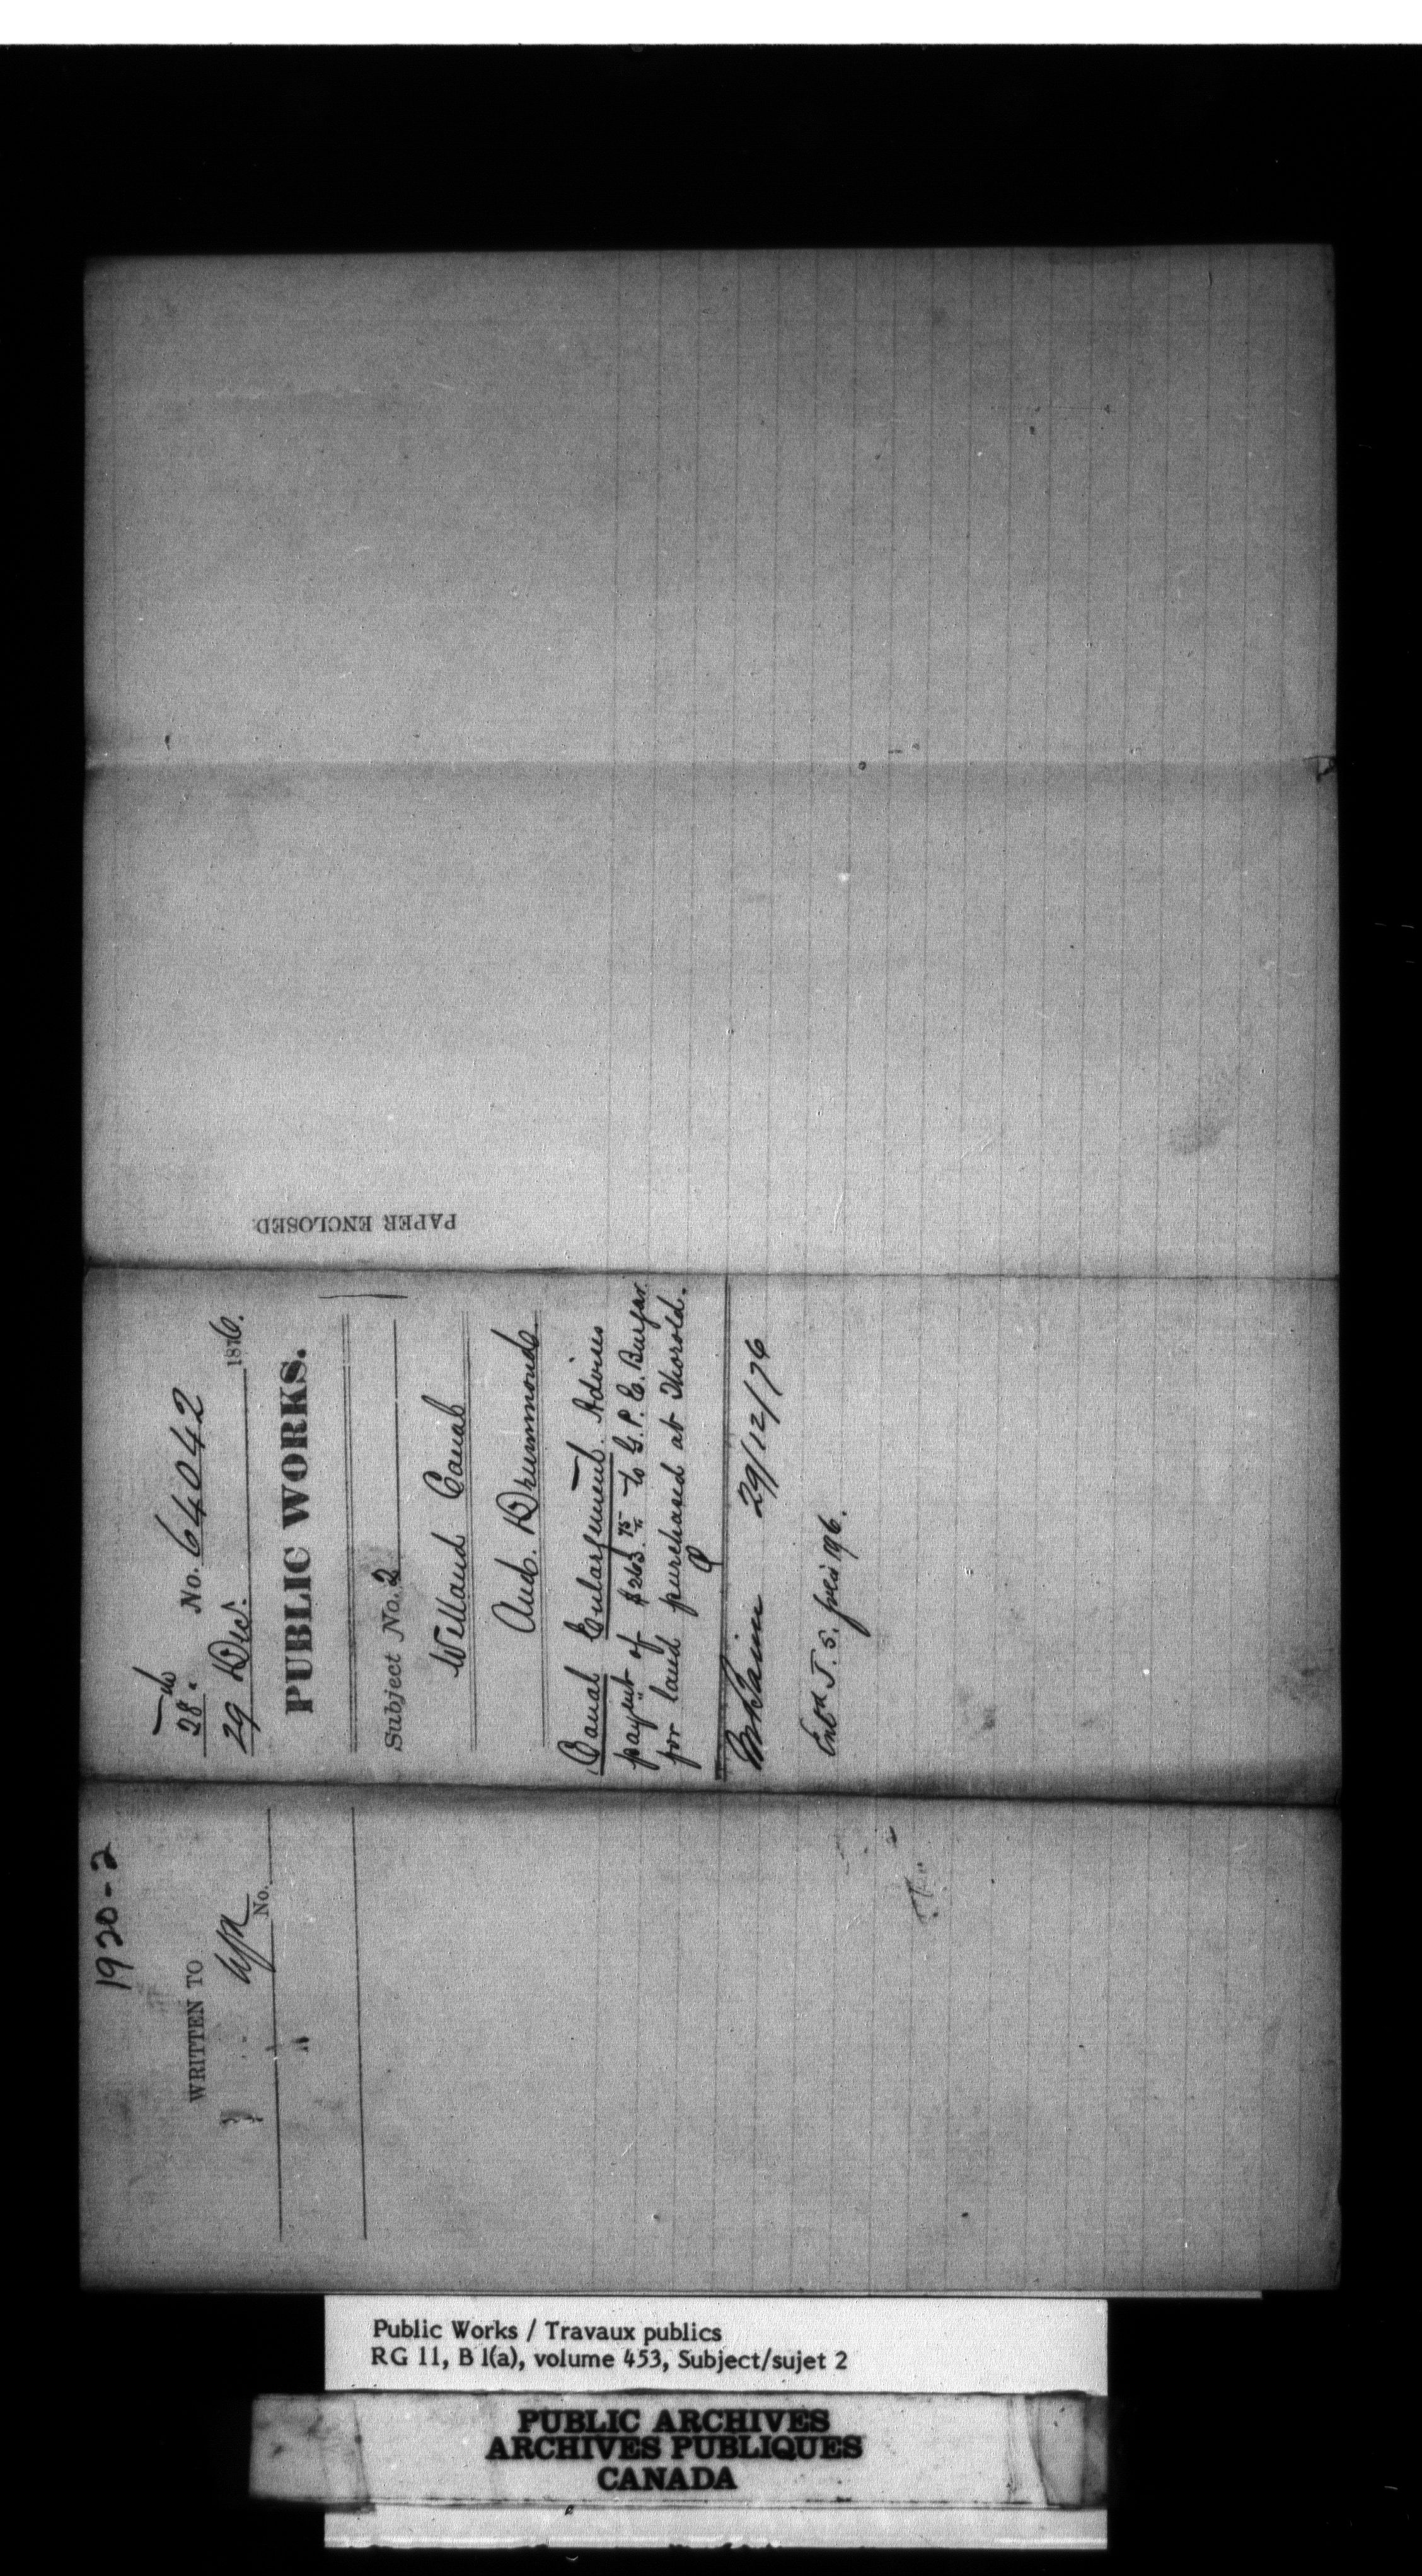 1920-2
WRITTEN TO
No.
"
28
No. 64042
29 Dec. 1876.
PUBLIC WORKS.
Subject No. 2
Welland Canal
And. Drummond
Canal Enlargement. Advises
paym't of $263.75 to G. P. C. Burgar
for land purchased at Thorold.
29/12/76
Entd J. S.
PAPER ENCLOSED
Public Works / Travaux publics
RG 11, B 1(a), volume 453, Subject/sujet 2
PUBLIC ARCHIVES
ARCHIVES PUBLIQUES
CANADA